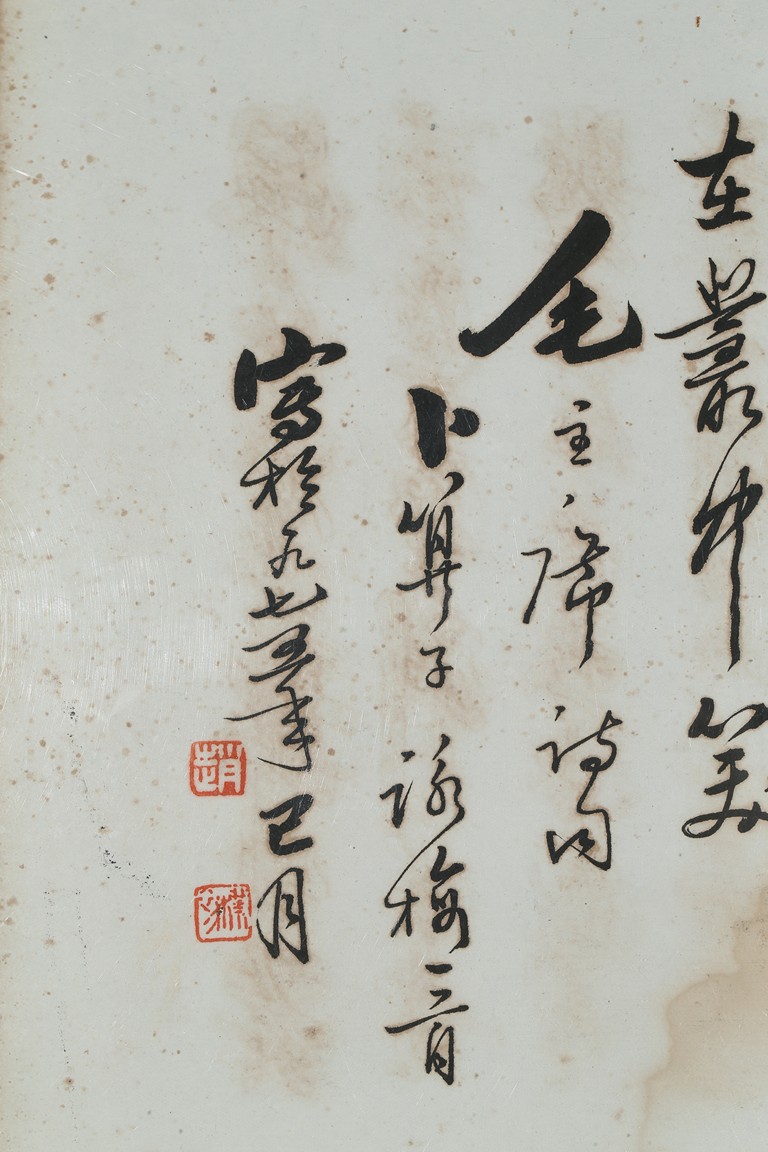 在叢中笑
毛主席詩詞
卜算子 詠梅一首
寫於一九七五年巳月
趙